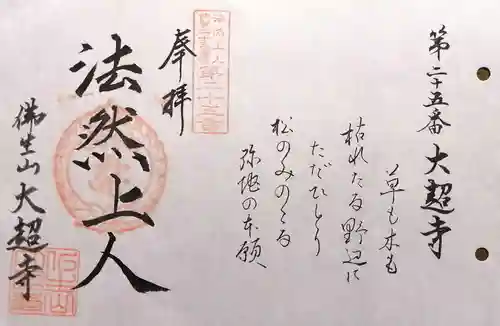 第二十五番 大超寺
草も木も
枯れたる野辺に
ただひとり
松のみのこる
弥陀の本願
奉拝
法然上人
佛生山 大超寺